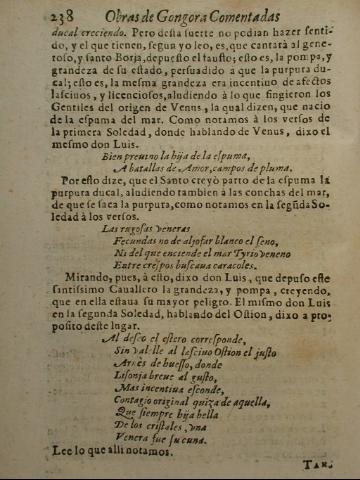 238 Obras de Gongora Comentadas
ducal creciendo. Pero desta suerte no podian hazer senti-
do, y el que tienen, segun yo leo, es, que cantarà al gene-
roso, y santo Borja, depuesto el fausto; esto es, la pompa, y
grandeza de su estado, persuadido a que la purpura du-
cal; esto es, la mesma grandeza era incentivo de afectos
lascivos, y licenciosos, aludiendo à lo que fingieron los
Gentiles del origen de Venus, la qual dizen, que nacio
de la espuma del mar. Como notamos à los versos de
la primera Soledad, donde hablando de Venus, dixo el
mesmo don Luis.
Bien previno la hija de la espuma,
A batallas de Amor, campos de pluma.
Por esto dize, que el Santo creyò parto de la espuma la
purpura ducal, aludiendo tambien à las conchas del mar,
de que se saca la purpura, como notamos en la segũda So-
ledad à los versos.
Las rugosas veneras
Fecundas no de aljofar blanco el seno,
Ni del que enciende el mar Tyrio veneno
Entre crespos buscava caracoles.
Mirando, pues, à esto, dixo don Luis, que depuso este
santissimo Cavallero la grandeza, y pompa, creyendo,
que en ella estava su mayor peligro. El mismo don Luis
en la segunda Soledad, hablando del Ostion, dixo a pro-
posito deste lugar.
Al deseo el estero corresponde,
Sin valelle al lascivo Ostion el justo
Arnès de huesso, donde
Lisonja breve al gusto,
Mas incentiva esconde,
Contagio original quiza de aquella,
Que siempre hija bella
De los cristales, una
Venera fue su cuna.
Lee lo que alli notamos.
Tam-